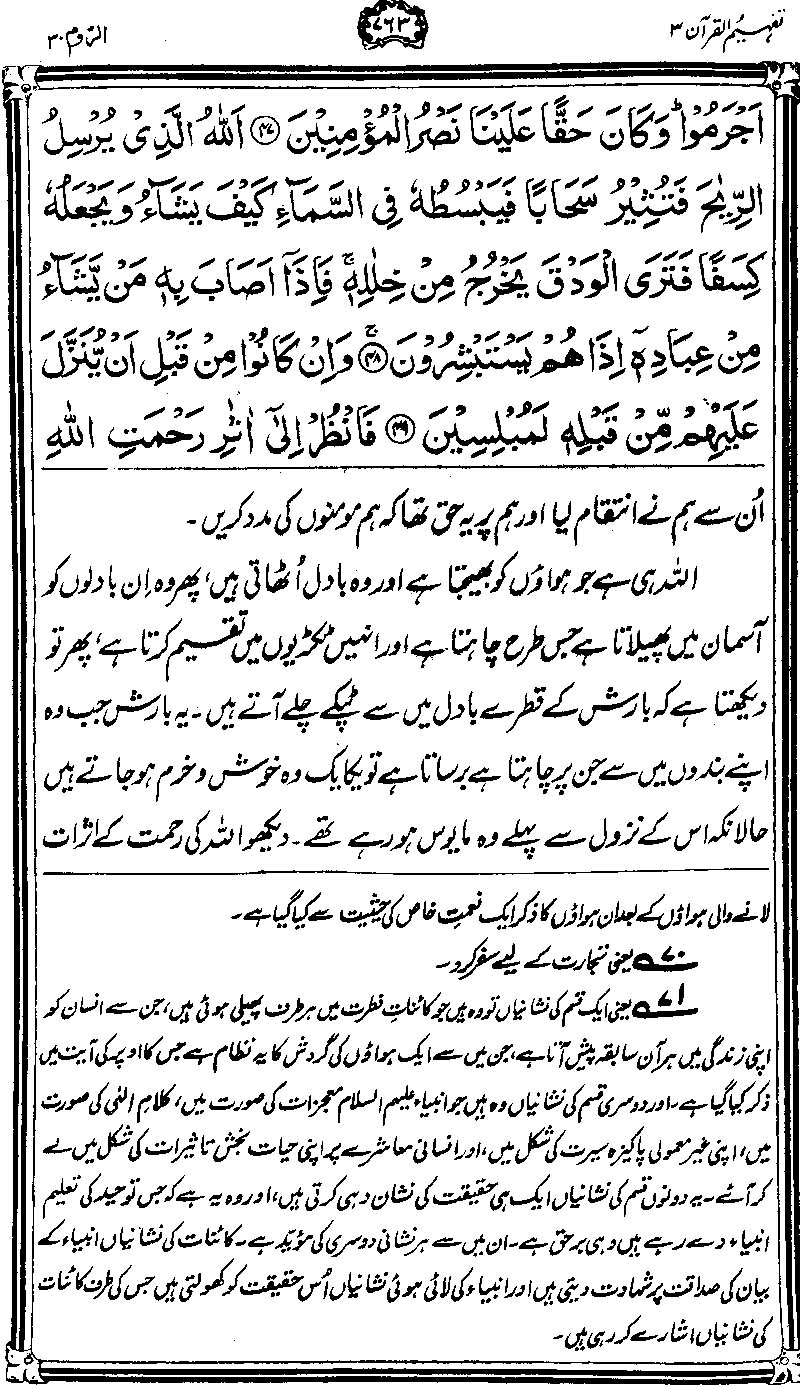 تفہیم القرآن ۳
۷۶۳
الروم ۳۰
اَجْرَمُوْا ؕ وَ كَانَ حَقًّا عَلَيْنَا نَصْرُ الْمُؤْمِنِيْنَ ۴۷ اَللّٰهُ الَّذِىْ يُرْسِلُ
الرِّيٰحَ فَتُثِيْرُ سَحَابًا فَيَبْسُطُهٗ فِى السَّمَآءِ كَيْفَ يَشَآءُ وَ يَجْعَلُهٗ
كِسَفًا فَتَرَى الْوَدْقَ يَخْرُجُ مِنْ خِلٰلِهٖ ۚ فَاِذَاۤ اَصَابَ بِهٖ مَنْ يَّشَآءُ
مِنْ عِبَادِهٖۤ اِذَا هُمْ يَسْتَبْشِرُوْنَ ۴۸ ۚ وَ اِنْ كَانُوْا مِنْ قَبْلِ اَنْ يُّنَزَّلَ
عَلَيْهِمْ مِّنْ قَبْلِهٖ لَمُبْلِسِيْنَ ۴۹ فَانْظُرْ اِلٰۤى اٰثٰرِ رَحْمَتِ اللّٰهِ
اُن سے ہم نے انتقام لیا اور ہم پر یہ حق تھا کہ ہم مومنوں کی مدد کریں۔
اللہ ہی ہے جو ہواؤں کو بھیجتا ہے اور وہ بادل اُٹھاتی ہیں، پھر وہ اِن بادلوں کو
آسمان میں پھیلاتا ہے جس طرح چاہتا ہے اور انہیں ٹکڑیوں میں تقسیم کرتا ہے، پھر تو
دیکھتا ہے کہ بارش کے قطرے بادل میں سے ٹپکے چلے آتے ہیں۔ یہ بارش جب وہ
اپنے بندوں میں سے جن پر چاہتا ہے برساتا ہے تو یکایک وہ خوش و خرم ہو جاتے ہیں
حالانکہ اس کے نزول سے پہلے وہ مایوس ہو رہے تھے۔ دیکھو اللہ کی رحمت کے اثرات
لانے والی ہواؤں کے بعد ان ہواؤں کا ذکر ایک نعمتِ خاص کی حیثیت سے کیا گیا ہے۔
۷۰؎ یعنی تجارت کے لیے سفر کرو۔
۷۱؎ یعنی ایک قسم کی نشانیاں تو وہ ہیں جو کائناتِ فطرت میں ہر طرف پھیلی ہوئی ہیں، جن سے انسان کو
اپنی زندگی میں ہر آن سابقہ پیش آتا ہے، جن میں سے ایک ہواؤں کی گردش کا یہ نظام ہے جس کا اوپر کی آیت میں
ذکر کیا گیا ہے۔ اور دوسری قسم کی نشانیاں وہ ہیں جو انبیاء علیہم السلام معجزات کی صورت میں، کلامِ الٰہی کی صورت
میں، اپنی غیر معمولی پاکیزہ سیرت کی شکل میں، اور انسانی معاشرے پر اپنی حیات بخش تاثیرات کی شکل میں لے
کر آئے۔ یہ دونوں قسم کی نشانیاں ایک ہی حقیقت کی نشان دہی کرتی ہیں، اور وہ یہ ہے کہ جس توحید کی تعلیم
انبیاء دے رہے ہیں وہی برحق ہے۔ ان میں سے ہر نشانی دوسری کی مؤیّد ہے۔ کائنات کی نشانیاں انبیاء کے
بیان کی صداقت پر شہادت دیتی ہیں اور انبیاء کی لائی ہوئی نشانیاں اُس حقیقت کو کھولتی ہیں جس کی طرف کائنات
کی نشانیاں اشارے کر رہی ہیں۔